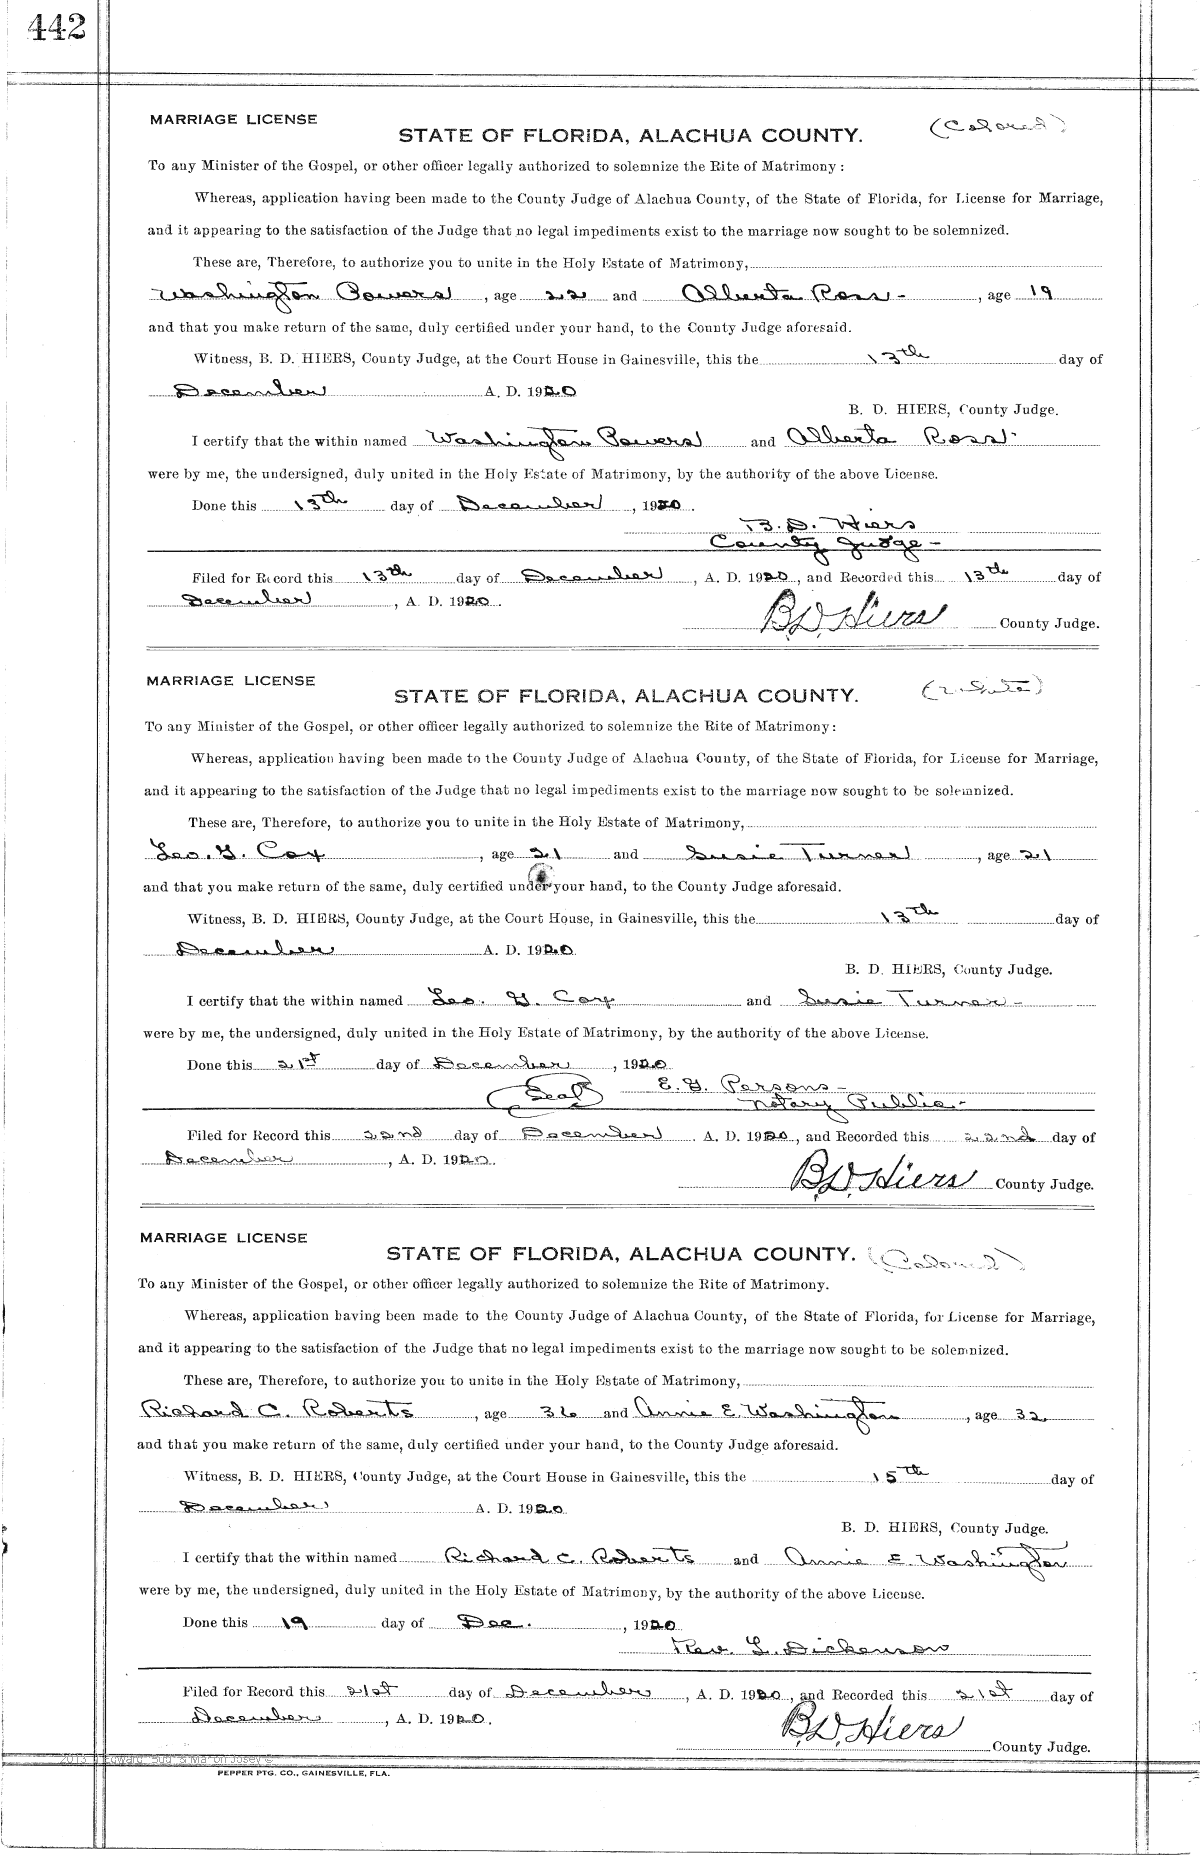 442
MARRIAGE LICENSE
STATE OF FLORIDA, ALACHUA COUNTY. (Colored)
To any Minister of the Gospel, or other officer legally authorized to solemnize the Rite of Matrimony:
Whereas, application having been made to the County Judge of Alachua County, of the State of Florida, for License for Marriage,
and it appearing to the satisfaction of the Judge that no legal impediments exist to the marriage now sought to be solemnized.
These are, Therefore, to authorize you to unite in the Holy Estate of Matrimony,
Washington Powers, age 22 and Alberta Ross-, age 19
and that you make return of the same, duly certified under your hand, to the County Judge aforesaid.
Witness, B. D. HIERS, County Judge, at the Court House in Gainesville, this the 13th day of
December A. D. 1920
B. D. HIERS, County Judge.
I certify that the within named Washington Powers and Alberta Ross
were by me, the undersigned, duly united in the Holy Estate of Matrimony, by the authority of the above License.
Done this 13th day of December, 1920.
B. D. Hiers
County Judge-
Filed for Record this 13th day of December, A. D. 1920, and Recorded this 13th day of
December, A. D. 1920.
B. D. Hiers County Judge.
MARRIAGE LICENSE
STATE OF FLORIDA, ALACHUA COUNTY. (White)
To any Minister of the Gospel, or other officer legally authorized to solemnize the Rite of Matrimony:
Whereas, application having been made to the County Judge of Alachua County, of the State of Florida, for License for Marriage,
and it appearing to the satisfaction of the Judge that no legal impediments exist to the marriage now sought to be solemnized.
These are, Therefore, to authorize you to unite in the Holy Estate of Matrimony,
Geo. G. Cox, age 21 and Susie Turner, age 21
and that you make return of the same, duly certified under your hand, to the County Judge aforesaid.
Witness, B. D. HIERS, County Judge, at the Court House, in Gainesville, this the 13th day of
December A. D. 1920
B. D. HIERS, County Judge.
I certify that the within named Geo. G. Cox and Susie Turner-
were by me, the undersigned, duly united in the Holy Estate of Matrimony, by the authority of the above License.
Done this 21st day of December, 1920
(Seal) E. G. Persons-
Notary Public-
Filed for Record this 22nd day of December. A. D. 1920, and Recorded this 22nd day of
December, A. D. 1920.
B. D. Hiers County Judge.
MARRIAGE LICENSE
STATE OF FLORIDA, ALACHUA COUNTY. (Colored)
To any Minister of the Gospel, or other officer legally authorized to solemnize the Rite of Matrimony.
Whereas, application having been made to the County Judge of Alachua County, of the State of Florida, for License for Marriage,
and it appearing to the satisfaction of the Judge that no legal impediments exist to the marriage now sought to be solemnized.
These are, Therefore, to authorize you to unite in the Holy Estate of Matrimony,
Richard C. Roberts, age 36 and Annie E. Washington, age 32
and that you make return of the same, duly certified under your hand, to the County Judge aforesaid.
Witness, B. D. HIERS, County Judge, at the Court House in Gainesville, this the 15th day of
December A. D. 1920
B. D. HIERS, County Judge.
I certify that the within named Richard C. Roberts and Annie E. Washington
were by me, the undersigned, duly united in the Holy Estate of Matrimony, by the authority of the above License.
Done this 19 day of Dec., 1920
Rev. L. Dickenson
Filed for Record this 21st day of December, A. D. 1920, and Recorded this 21st day of
December, A. D. 1920.
B. D. Hiers County Judge.
PEPPER PTG. CO., GAINESVILLE, FLA.